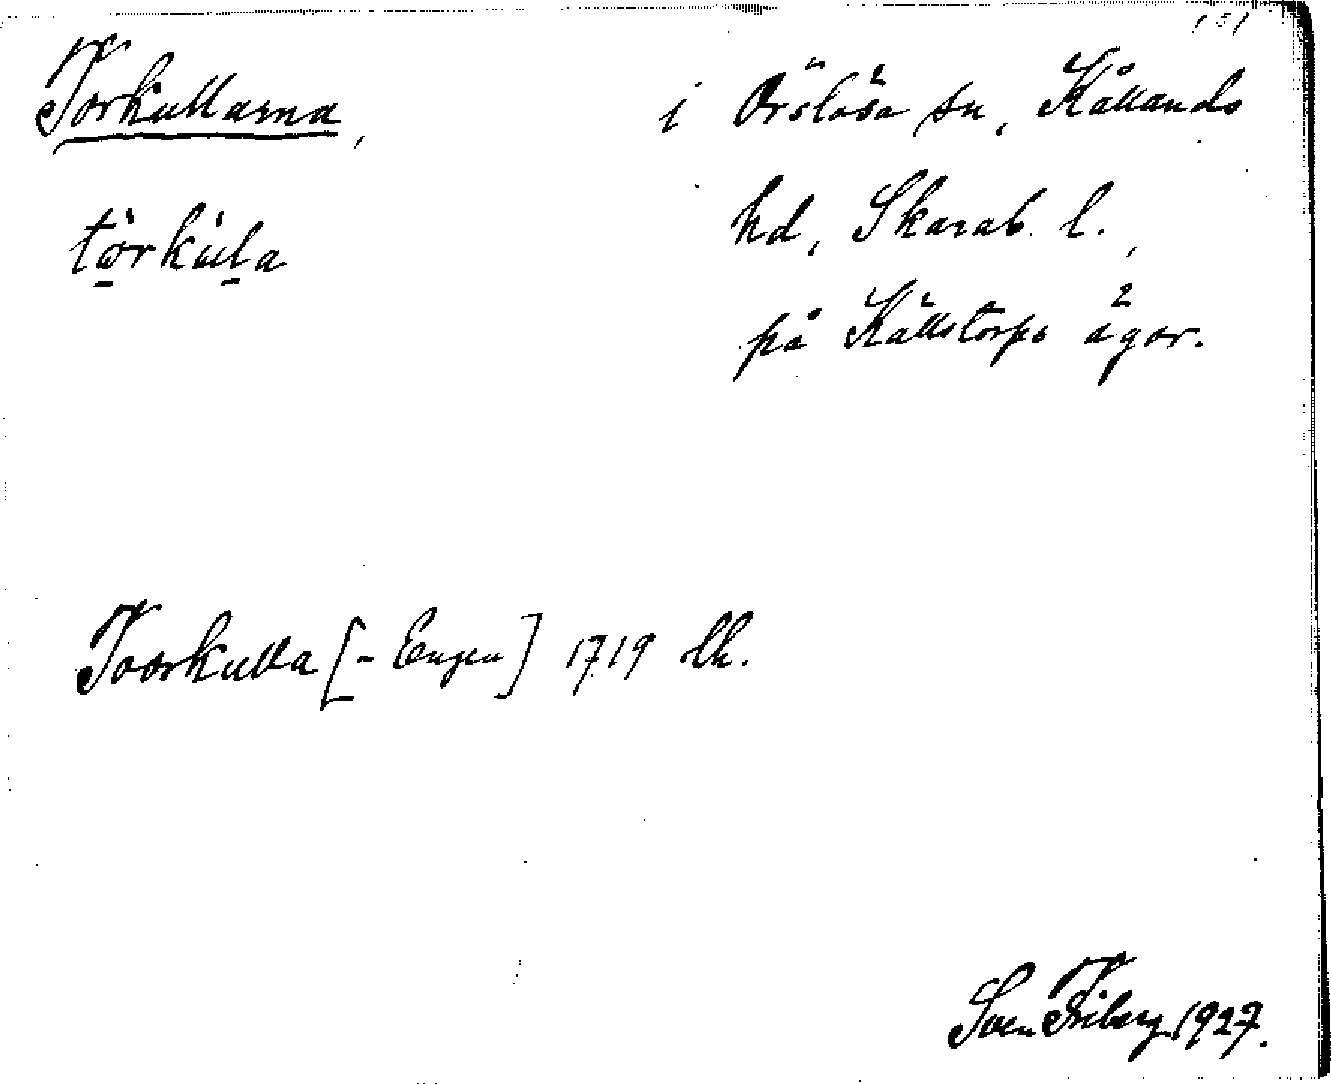 Torkullarna, i Örslösa sn, Kållands
törkula hd, Skarab. l.,
på Källstorps ägor.
Toorkulla [- Engen] 1719 lk.
Sven Friberg 1927.